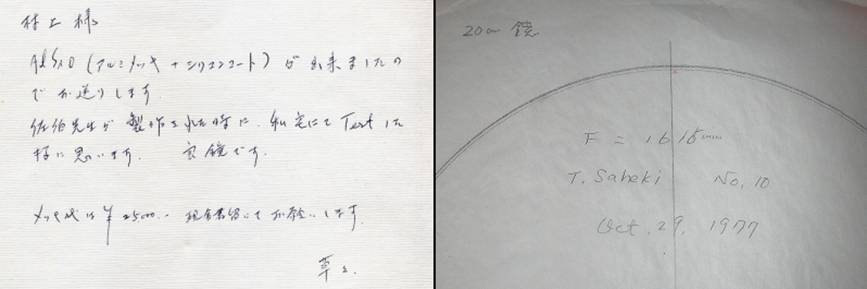 村上様
AlSiO（アルミメッキ + シリコンコート）が出来ましたの
でお送りします。
佐伯先生が製作された時に、私宅にてTestした
様に思います。 良鏡です。
メッキ代は¥2500.. 現金書留にてお願いします。
草
20cm 鏡
F = 1615mm
T. Saheki No. 10
Oct. 29. 1977